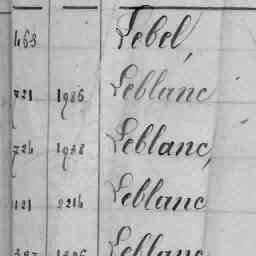 463 Lebel,
721 1986 Leblanc
724 1938 Leblanc,
121 2214 Leblanc
Leblanc